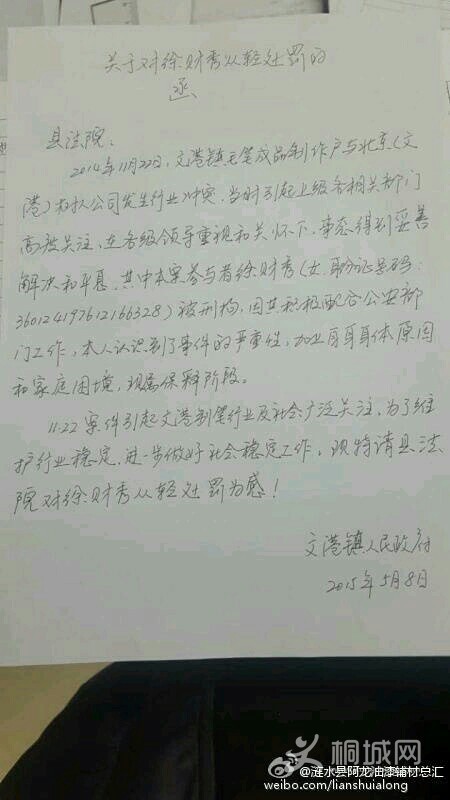 关于对徐财秀从轻处罚的
函
县法院：
2014年11月22日，文港镇毛笔成品制作户与北京（文
港）公司发生行业冲突，当时引起上级各相关部门
高被关注，在各级领导重视和关怀下，事态得到妥善
解决和平息，其中本案参与者徐财秀（女，身份证号码：
360124197612166328）被刑拘，因其积极配合公安部
门工作，本人认识到了事件的严重性，加上自身身体原因
和家庭困境，现属保释阶段。
11.22案件引起文港制笔行业及社会广泛关注，为了维
护行业稳定，进一步做好社会稳定工作，现特请县法
院对徐财秀从轻处罚为感！
文港镇人民政府
2015年5月8日
桐城网
@涟水县阿龙油漆辅材总汇
weibo.com/lianshuialong